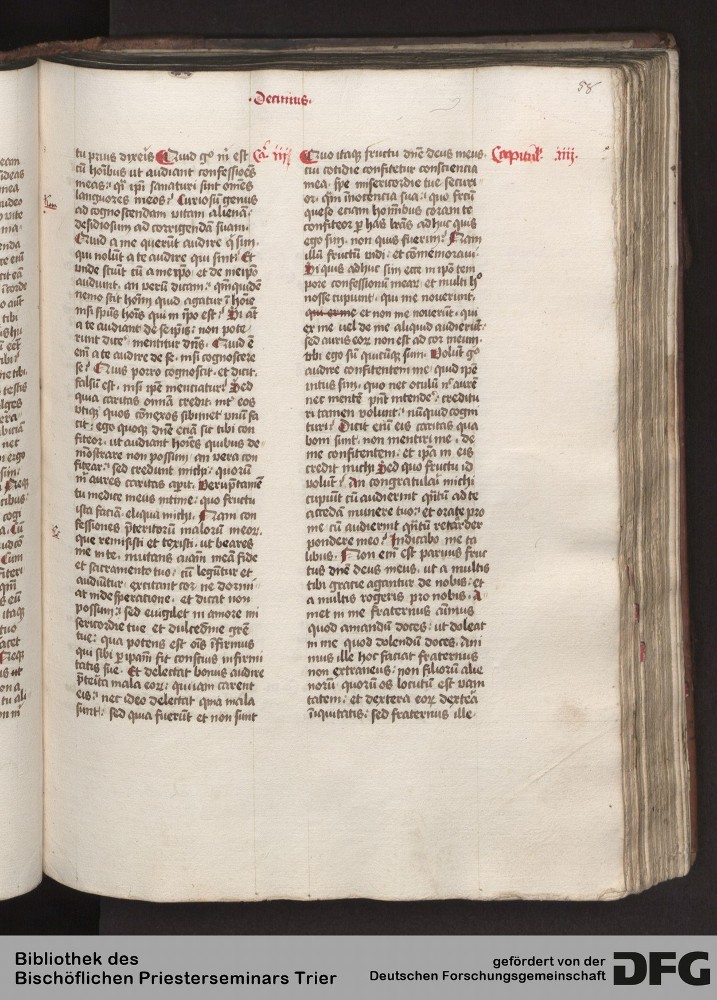 ·Decimus·
58
tu prius dixeris Quid gͦ m̄ est Ca. iij
cū hoībus ut audiant confessiōes
meas: qͣ ipī sanaturi sint om̄es
languores meos? Curiosū genus
ad cognoscendam vitam alienā:
desidiosum ad corrigendā suam.
Quid a me querūt audire q̄ sim:
qui nolūt a te audire qui sint? Et
vnde sciūt cū a meip̄o et de meip̄o
audiunt. an verū dicam: qn̄quidē
nemo scit hoīm quid agatur ī hoīe
nisi sp̄us hoīs qui in ip̄o est? Si āt
a te audiant de seip̄is: non pote
runt dice mentitur dn̄s. Quid ē
em̄ a te audire de se. nisi cognoscere
se? Quis porro cognoscit. et dicit.
falsū est. nisi ip̄e menciatur? Sed
quia caritas omīa credit. int̄ eos
vtiq̨ quos cōnexos sibimet vnū fa
cit: ego quoq̨ dn̄e eciā sic tibi con
fiteor. ut audiant hoīes quibus de
mōstrare non possum. an vera con
fitear: sed credunt michi: quorū
m̄ aures caritas apit. Verūptamē
tu medice meus intime: quo fructu
ista faciā. eliqua michi. Nam con
fessiones p̄teritorū malorū meoꝝ.
que remisisti et texisti. ut beares
me in te. mutans aīam meā fide
et sacramento tuo: cū legūtur et
audiūtur: excitant cor ne dormi
at in desperatione. et dicat non
possum: sed euigilet in amore mi
sericordie tue et dulcedīne grē
tue: qua potens est oīs īfirmus
qui sibi ꝑ ipam̄ fit conscius infirmi
tatis sue. Et delectat bonus audire
p̄terita mala eoꝝ: qui iam carent
eis: nec ideo delectat quia mala
sunt: sed quia fuerūt et non sunt
Quo itaq̨ fructu dn̄e deus meus. Capitulū .iiij.
cui cotidie confitetur consciencia
mea. spe misericordie tue securi
or. qͣm īnocencia sua: quo fr̄cū
queso eciam hoīmibus coram te
confiteor ꝑ has lr̄as adhuc quis
ego sim. non quis fuerim? Nam
illū fructū vidi: et cōmemoraui.
Si quis adhuc sim ecce in ip̄o tem
pore confessionū mear. et multi hͦ
nosse cupiunt. qui me nouerūt.
qui ex me et non me nouerūt. qui
ex me uel de me aliquid audierūt:
sed auris eoꝝ non est ad cor meum.
ubi ego sū quicūq̨ sum. Volūt gͦ
audire confitentem me quid ip̄e
intus sim. quo nec oculū nͨ aurē
nec mentē pn̄t intende: creditu
ri tamen volunt: nūquid cogni
turi? Dicit em̄ eis caritas qua
boni sunt. non mentiri me. de
me confitentem: et ip̄a in eis
credit michi Sed quo fructu id
volūt? An congratulari michi
cupiūt cū audierint qn̄tū ad te
accedā munere tuo: et orate pro
me cū audierint qn̄tū retarder
pondere meo? Indicabo me ta
libus. Non em̄ est paruus fruc
tus dn̄e deus meus. ut a multis
tibi gracie agantur de nobis: et
a multis rogeris pro nobis. A
met in me fraternus aīmus
quod amandū doces: ut doleat
in me quod dolendū doces. Ani
mus ille hoc faciat fraternus
non extraneus: non filiorū alie
norū quorū os locutū est vani
tatem: et dextera eoꝝ dexterā
īiquitatis: sed fraternus ille.
Bibliothek des
Bischöflichen Priesterseminars Trier
gefördert von der
Deutschen Forschungsgemeinschaft
DFG